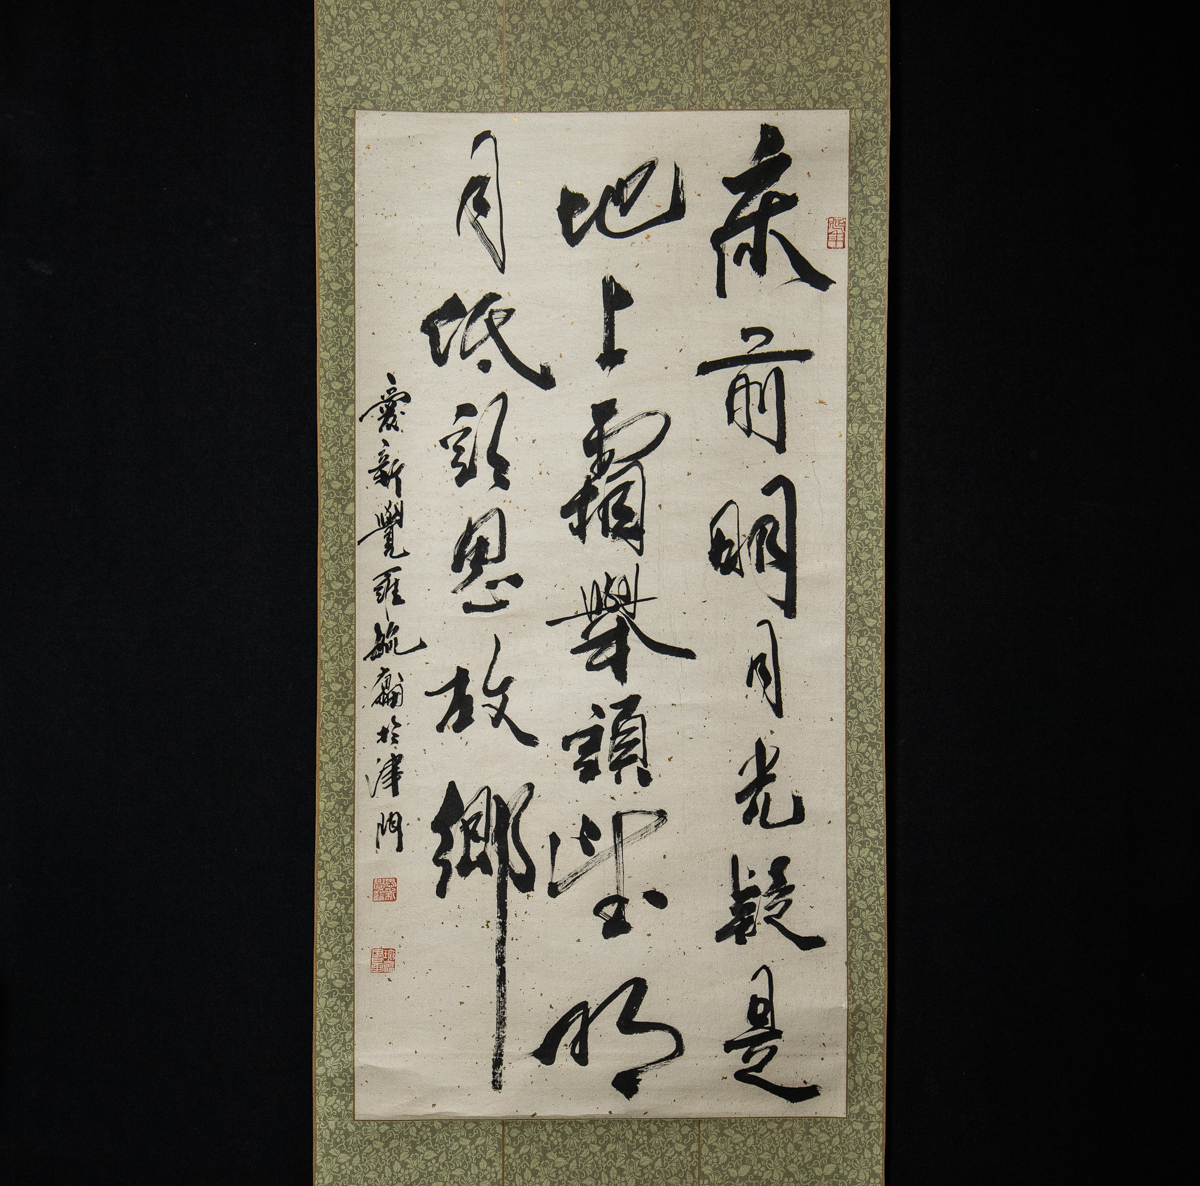 床前明月光疑是
地上霜舉頭望明
月低頭思故鄉
愛新覺羅毓嶦於津門